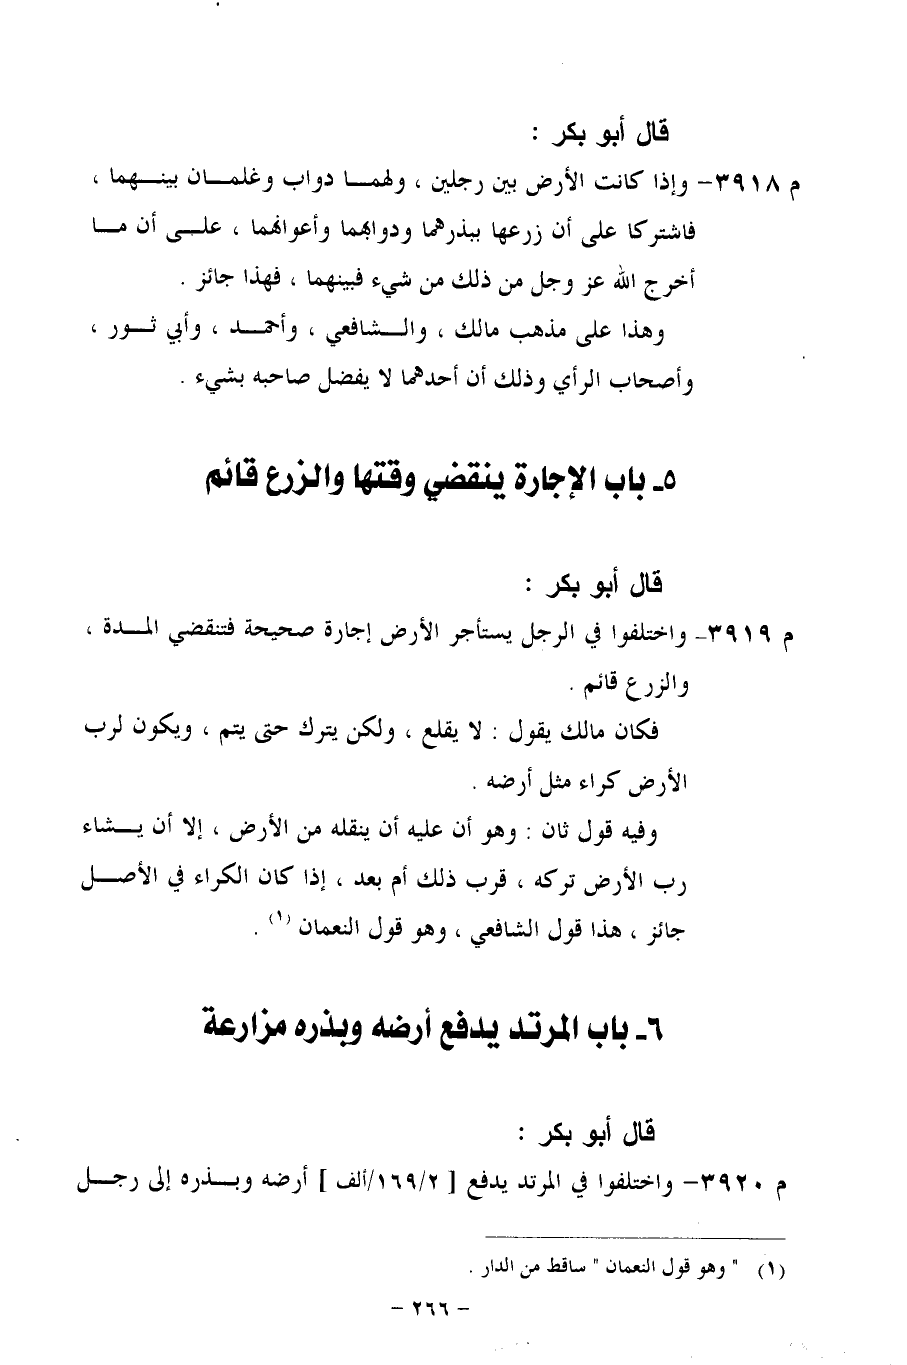 قال أبو بكر :
م ٣٩١٨- وإذا كانت الأرض بين رجلين ، ولهمـــا دواب وغلمـــان بينـــهما ،
فاشتركا على أن زرعها ببذرهما ودوابهما وأعوانهما ، علـــى أن مـــا
أخرج الله عز وجل من ذلك من شيء فبينهما ، فهذا جائز .
وهذا على مذهب مالك ، والـــشافعي ، وأحمـــد ، وأبي ثـــور ،
وأصحاب الرأي وذلك أن أحدهما لا يفضل صاحبه بشيء .
٥ـ باب الإجارة ينقضي وقتها والزرع قائم
قال أبو بكر :
م ٣٩١٩- واختلفوا في الرجل يستأجر الأرض إجارة صحيحة فتنقضي المـــدة ،
والزرع قائم .
فكان مالك يقول : لا يقلع ، ولكن يترك حتى يتم ، ويكون لرب
الأرض كراء مثل أرضه .
وفيه قول ثان : وهو أن عليه أن ينقله من الأرض ، إلا أن يـــشاء
رب الأرض تركه ، قرب ذلك أم بعد ، إذا كان الكراء في الأصـــل
جائز ، هذا قول الشافعي ، وهو قول النعمان (١) .
٦ـ باب المرتد يدفع أرضه وبذره مزارعة
قال أبو بكر :
م ٣٩٢٠- واختلفوا في المرتد يدفع [ ١٦٩/٢/ألف ] أرضه وبـــذره إلى رجـــل
(١) " وهو قول النعمان " ساقط من الدار .
- ٢٦٦ -